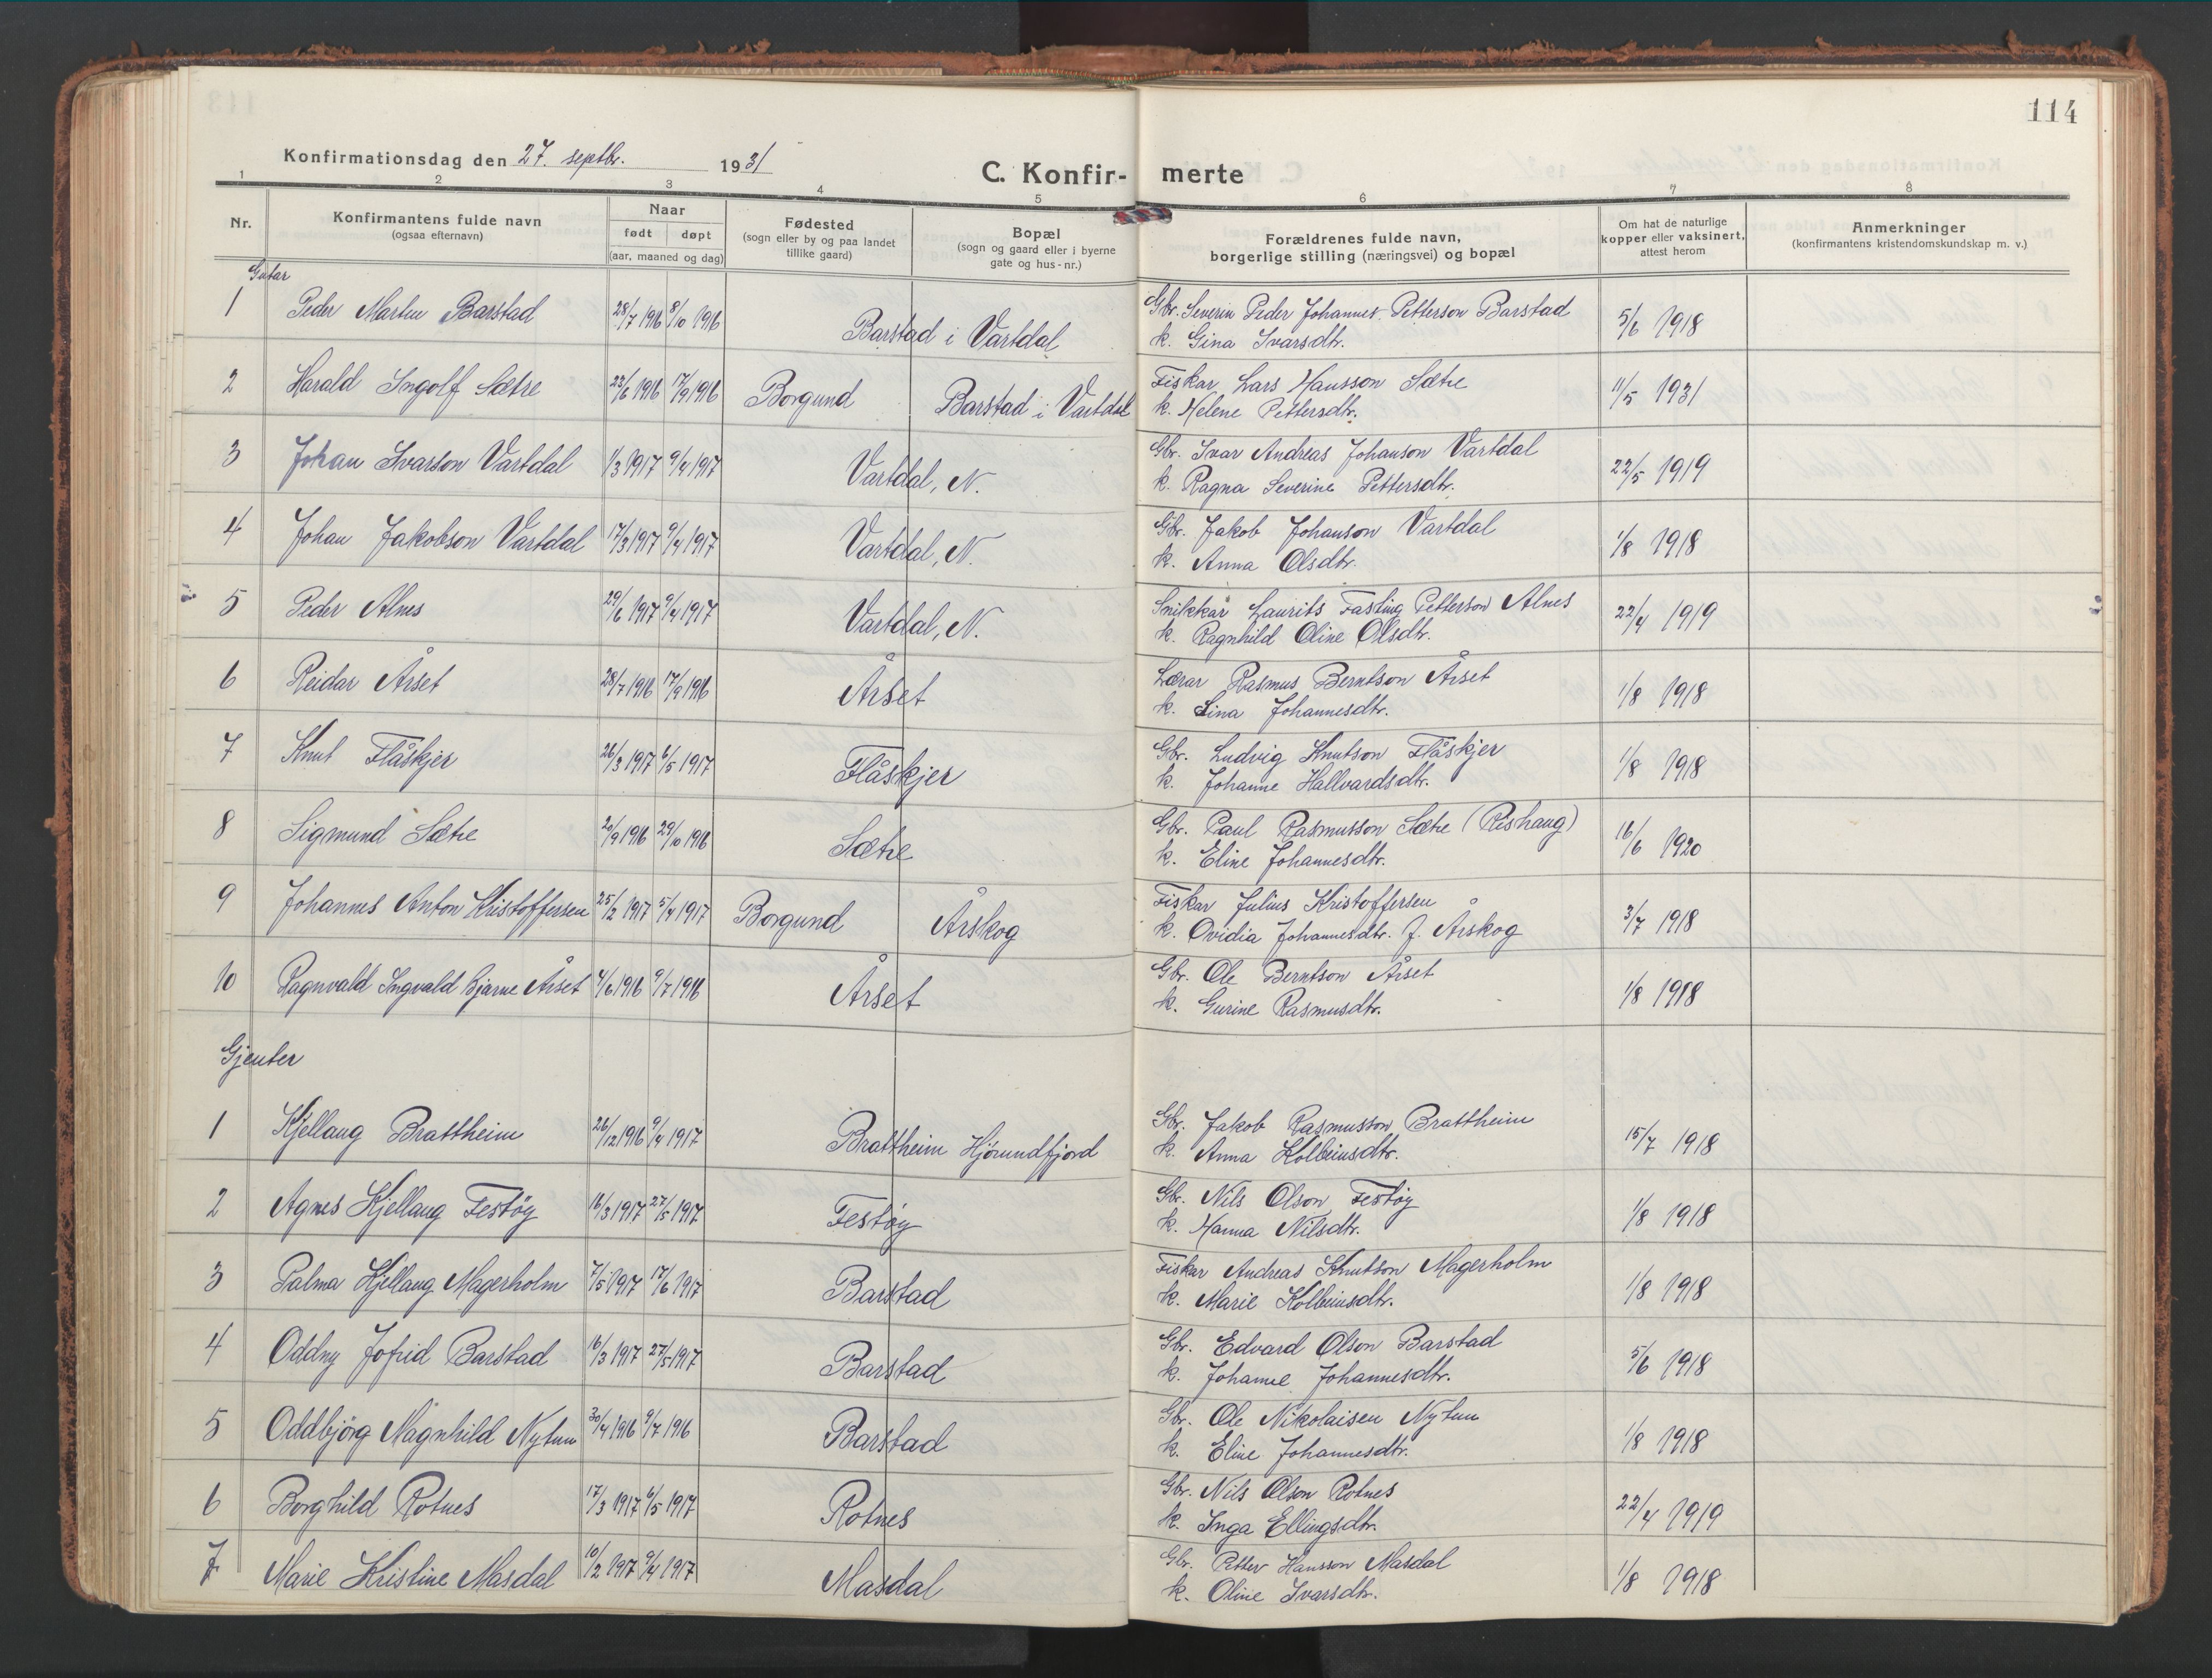 114
Konfirmationsdag den 27. septbr. 1931
C. Konfir- merte
1 2 3 4 5 6 7 8
Nr.
Konfirmantens fulde navn
(ogsaa efternavn)
Naar
født døpt
(aar, maaned og dag)
Fødested
(sogn eller by og paa landet
tillike gaard)
Bopæl
(sogn og gaard eller i byerne
gate og hus-nr.)
Forældrenes fulde navn,
borgerlige stilling (næringsvei) og bopæl
Om hat de naturlige
kopper eller vaksinert,
attest herom
Anmerkninger
(konfirmantens kristendomskundskap m. v.)
Gutar
1 Peder Marten Barstad 28/7 1916 8/10 1916 Barstad i Vartdal Gbr. Severin Peder Johannes Petterson Barstad 5/6 1918
k. Gina Ivarsdtr.
2 Harald Ingolf Sætre 23/6 1916 17/9 1916 Borgund Barstad i Vartdal Fiskar Lars Hansson Sætre 11/5 1931
k. Helene Pettersdtr.
3 Johan Ivarson Vartdal 1/3 1917 9/4 1917 Vartdal, N. Gbr. Ivar Andreas Johanson Vartdal 22/5 1919
k. Ragna Severine Pettersdtr.
4 Johan Jakobson Vartdal 17/3 1917 9/4 1917 Vartdal, N. Gbr. Jakob Johanson Vartdal 1/8 1918
k. Anna Olsdtr.
5 Peder Alnes 29/6 1917 9/4 1917 Vartdal, N. Snikkar Laurits Fasting Petterson Alnes 22/4 1919
k. Ragnhild Oline Olsdtr.
6 Reidar Årset 28/7 1916 17/9 1916 Årset Lærar Rasmus Berntson Årset 1/8 1918
k. Lina Johannesdtr.
7 Knut Flåskjer 26/3 1917 6/5 1917 Flåskjer Gbr. Ludvig Knutson Flåskjer 1/8 1918
k. Johanne Hallvardsdtr.
8 Sigmund Sætre 20/9 1916 29/10 1916 Sætre Gbr. Paul Rasmusson Sætre (Rishaug) 16/6 1920
k. Eline Johannesdtr.
9 Johannes Anton Kristoffersen 25/2 1917 5/4 1917 Borgund Årskog Fiskar Julius Kristoffersen 3/7 1918
k. Ovidia Johannesdtr. f. Årskog
10 Ragnvald Ingvald Bjarne Årset 4/6 1916 9/7 1916 Årset Gbr. Ole Berntson Årset 1/8 1918
k. Gurine Rasmusdtr.
Gjenter
1 Kjellaug Brattheim 26/12 1916 9/4 1917 Brattheim Hjørundfjord Gbr. Jakob Rasmusson Brattheim 15/7 1918
k. Anna Kolbeinsdtr.
2 Agnes Kjellaug Festøy 16/3 1917 27/5 1917 Festøy Gbr. Nils Olson Festøy 1/8 1918
k. Hanna Nilsdtr.
3 Palma Kjellaug Magerholm 7/5 1917 17/6 1917 Barstad Fiskar Andreas Knutson Magerholm 1/8 1918
k. Marie Kolbeinsdtr.
4 Oddny Jofrid Barstad 16/3 1917 27/5 1917 Barstad Gbr. Edvard Olson Barstad 5/6 1918
k. Johanne Johannesdtr.
5 Oddbjörg Magnhild Nytun 30/4 1916 9/7 1916 Barstad Gbr. Ole Nikolaisen Nytun 1/8 1918
k. Eline Johannesdtr.
6 Borghild Rotnes 17/3 1917 6/5 1917 Rotnes Gbr. Nils Olson Rotnes 22/4 1919
k. Inga Ellingsdtr.
7 Marie Kristine Masdal 10/2 1917 9/4 1917 Masdal Gbr. Petter Hansson Masdal 1/8 1918
k. Oline Ivarsdtr.